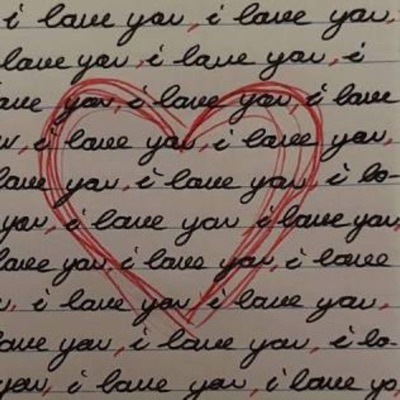 i love you, i love you,
love you, i love you, i
ove you, i love you, i love
u, i love you, i love you,
love you, i love you, i lo-
you, i love you i love you,
love you, i love you, i love
u, i love you, i love you,
love you, i love you, i lo-
you, i love you, i love yo